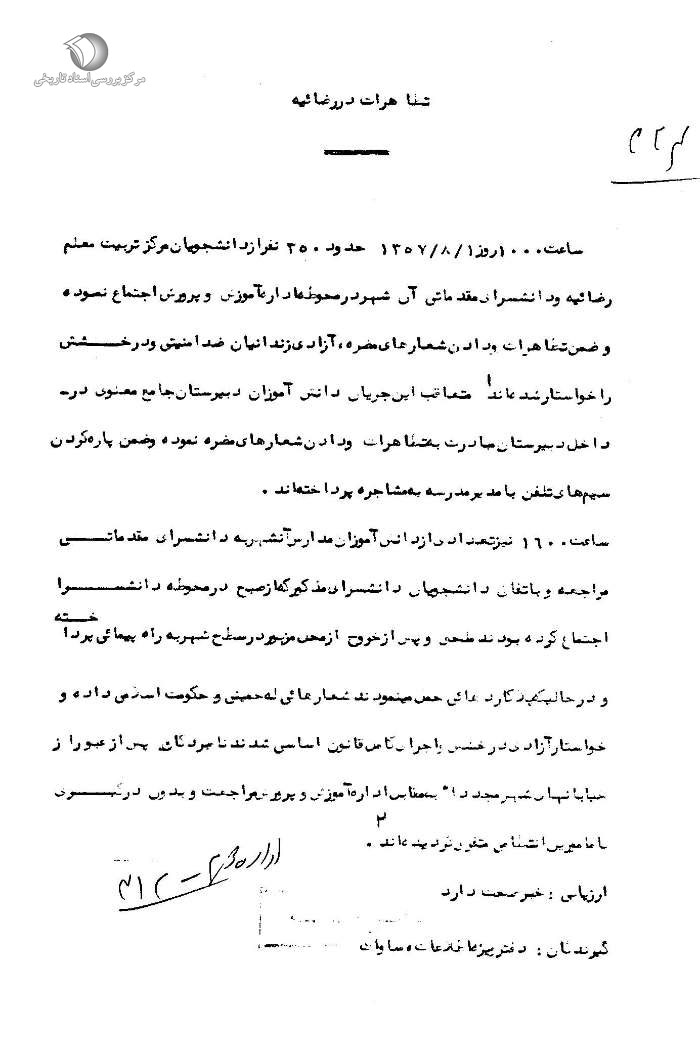 مرکز بررسی اسناد تاریخی
تظاهرات در رضائیه
ساعت ۱۰۰۰ روز ۱۳۵۷/۸/۱ حدود ۲۵۰ نفر از دانشجویان مرکز تربیت معلم
رضائیه و دانشسرای مقدماتی آن شهر در محوطه اداره آموزش و پرورش اجتماع نموده
و ضمن تظاهرات و دادن شعارهای مضره، آزادی زندانیان ضد امنیتی و درخشش
را خواستار شده اند متعاقب این جریان دانش آموزان دبیرستان جامع معنوی در
داخل دبیرستان مبادرت به تظاهرات و دادن شعارهای مضره نموده و ضمن پاره کردن
سیم های تلفن با مدیر مدرسه به مشاجره پرداخته اند .
ساعت ۱۶۰۰ نیز تعدادی از دانش آموزان مدارس آنشهر به دانشسرای مقدماتی
مراجعه و باتفاق دانشجویان دانشسرای مذکور که از صبح در محوطه دانشسرا
اجتماع کرده بودند ملحق و پس از خروج از محل مزبور در سطح شهر به راه پیمائی پرداخته
و در حالیکه پلاکارد هائی حمل مینمودند شعارهائی له خمینی و حکومت اسلامی داده و
خواستار آزادی درخشش و اجرای کامل قانون اساسی شدند نامبردگان پس از عبور از
خیابانهای شهر مجددا" به مقابل اداره آموزش و پرورش مراجعت و بدون درگیری
با مامورین انتظامی متفرق گردیده اند .
۲
اداره
۳۱۲
ارزیابی : خبر صحت دارد
گیرندگان : دفتر ویژه اطلاعات ساواک